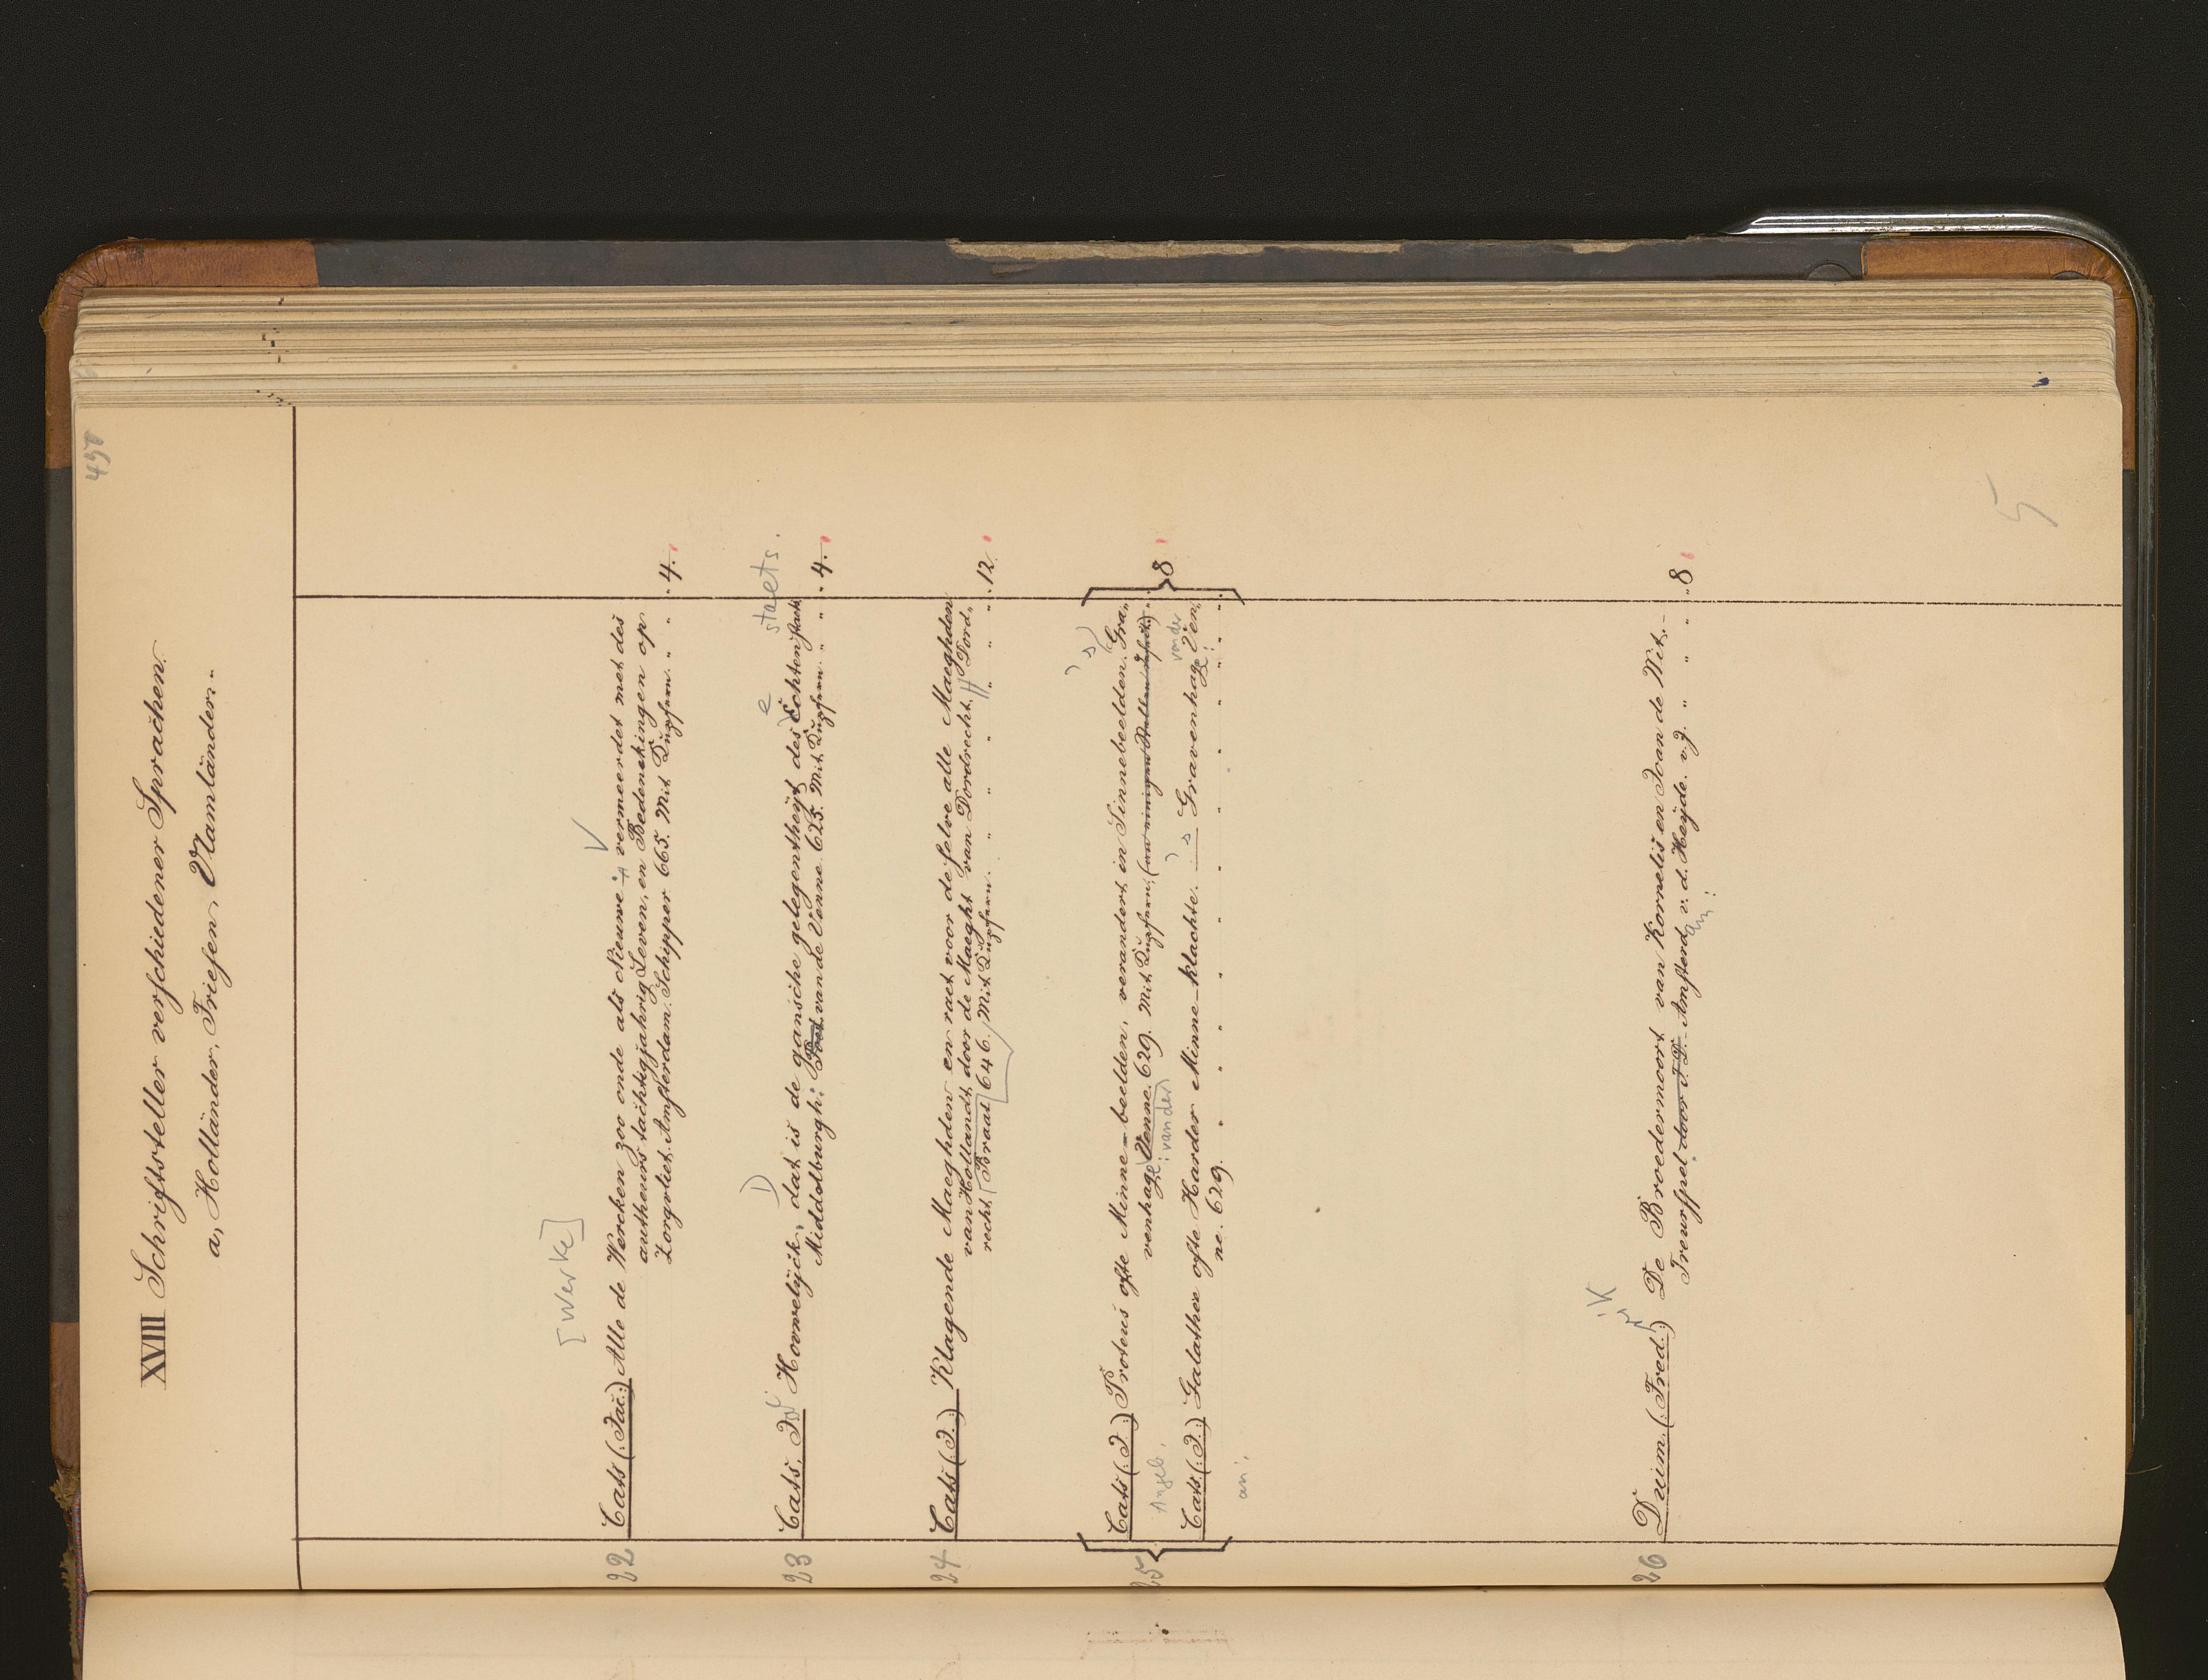 450
XVIII Schriftsteller verschiedener Sprachen.
a, Holländer, Friesen, Vlamländer.
[Werke]
22 Cats (: Jac:) Alle de Wercken zoo oude als Nieuwe; vermeerdet met des
autheurs tachtigjahrig Leven, en Bedenckingen op
Zorgvliet. Amsterdam. Schipper 665. Mit Kupfern. " " . 4.
e staets.
23 Cats. J. Houwelijck, dat is de gansche gelegentheyt des Echten staets
Middelburgh: Poet. van de Venne. 625. Mit Kupfern. " " . 4.
24 Cats (: J. :) Klagende Maeghden en raet voor deselve alle Maeghden
van Hollandt, door de Maeght van Dordrecht. Dord,,
recht. Braat 646. Mit Kupfern. " " " " " " . 12.
's
25 Cats (: J. :) Proteus ofte Minne-beelden, verandert in Sinnebeelden. Gra,,
venhage. Venne. 629. Mit Kupfern,
Angeb. : vander
8
's vander
Cats. (: J. :) Galathee ofte Harder Minne-klachte. Gravenhage: Ven,,
ne. 629.
an:
26 Duim. (: Fred. :) De Broedermoort van Kornelis en Joan de Wit.
Treurspel. door F. D. Amsterd. v. d. Heyde. v. J. " " " . 8
am:
5